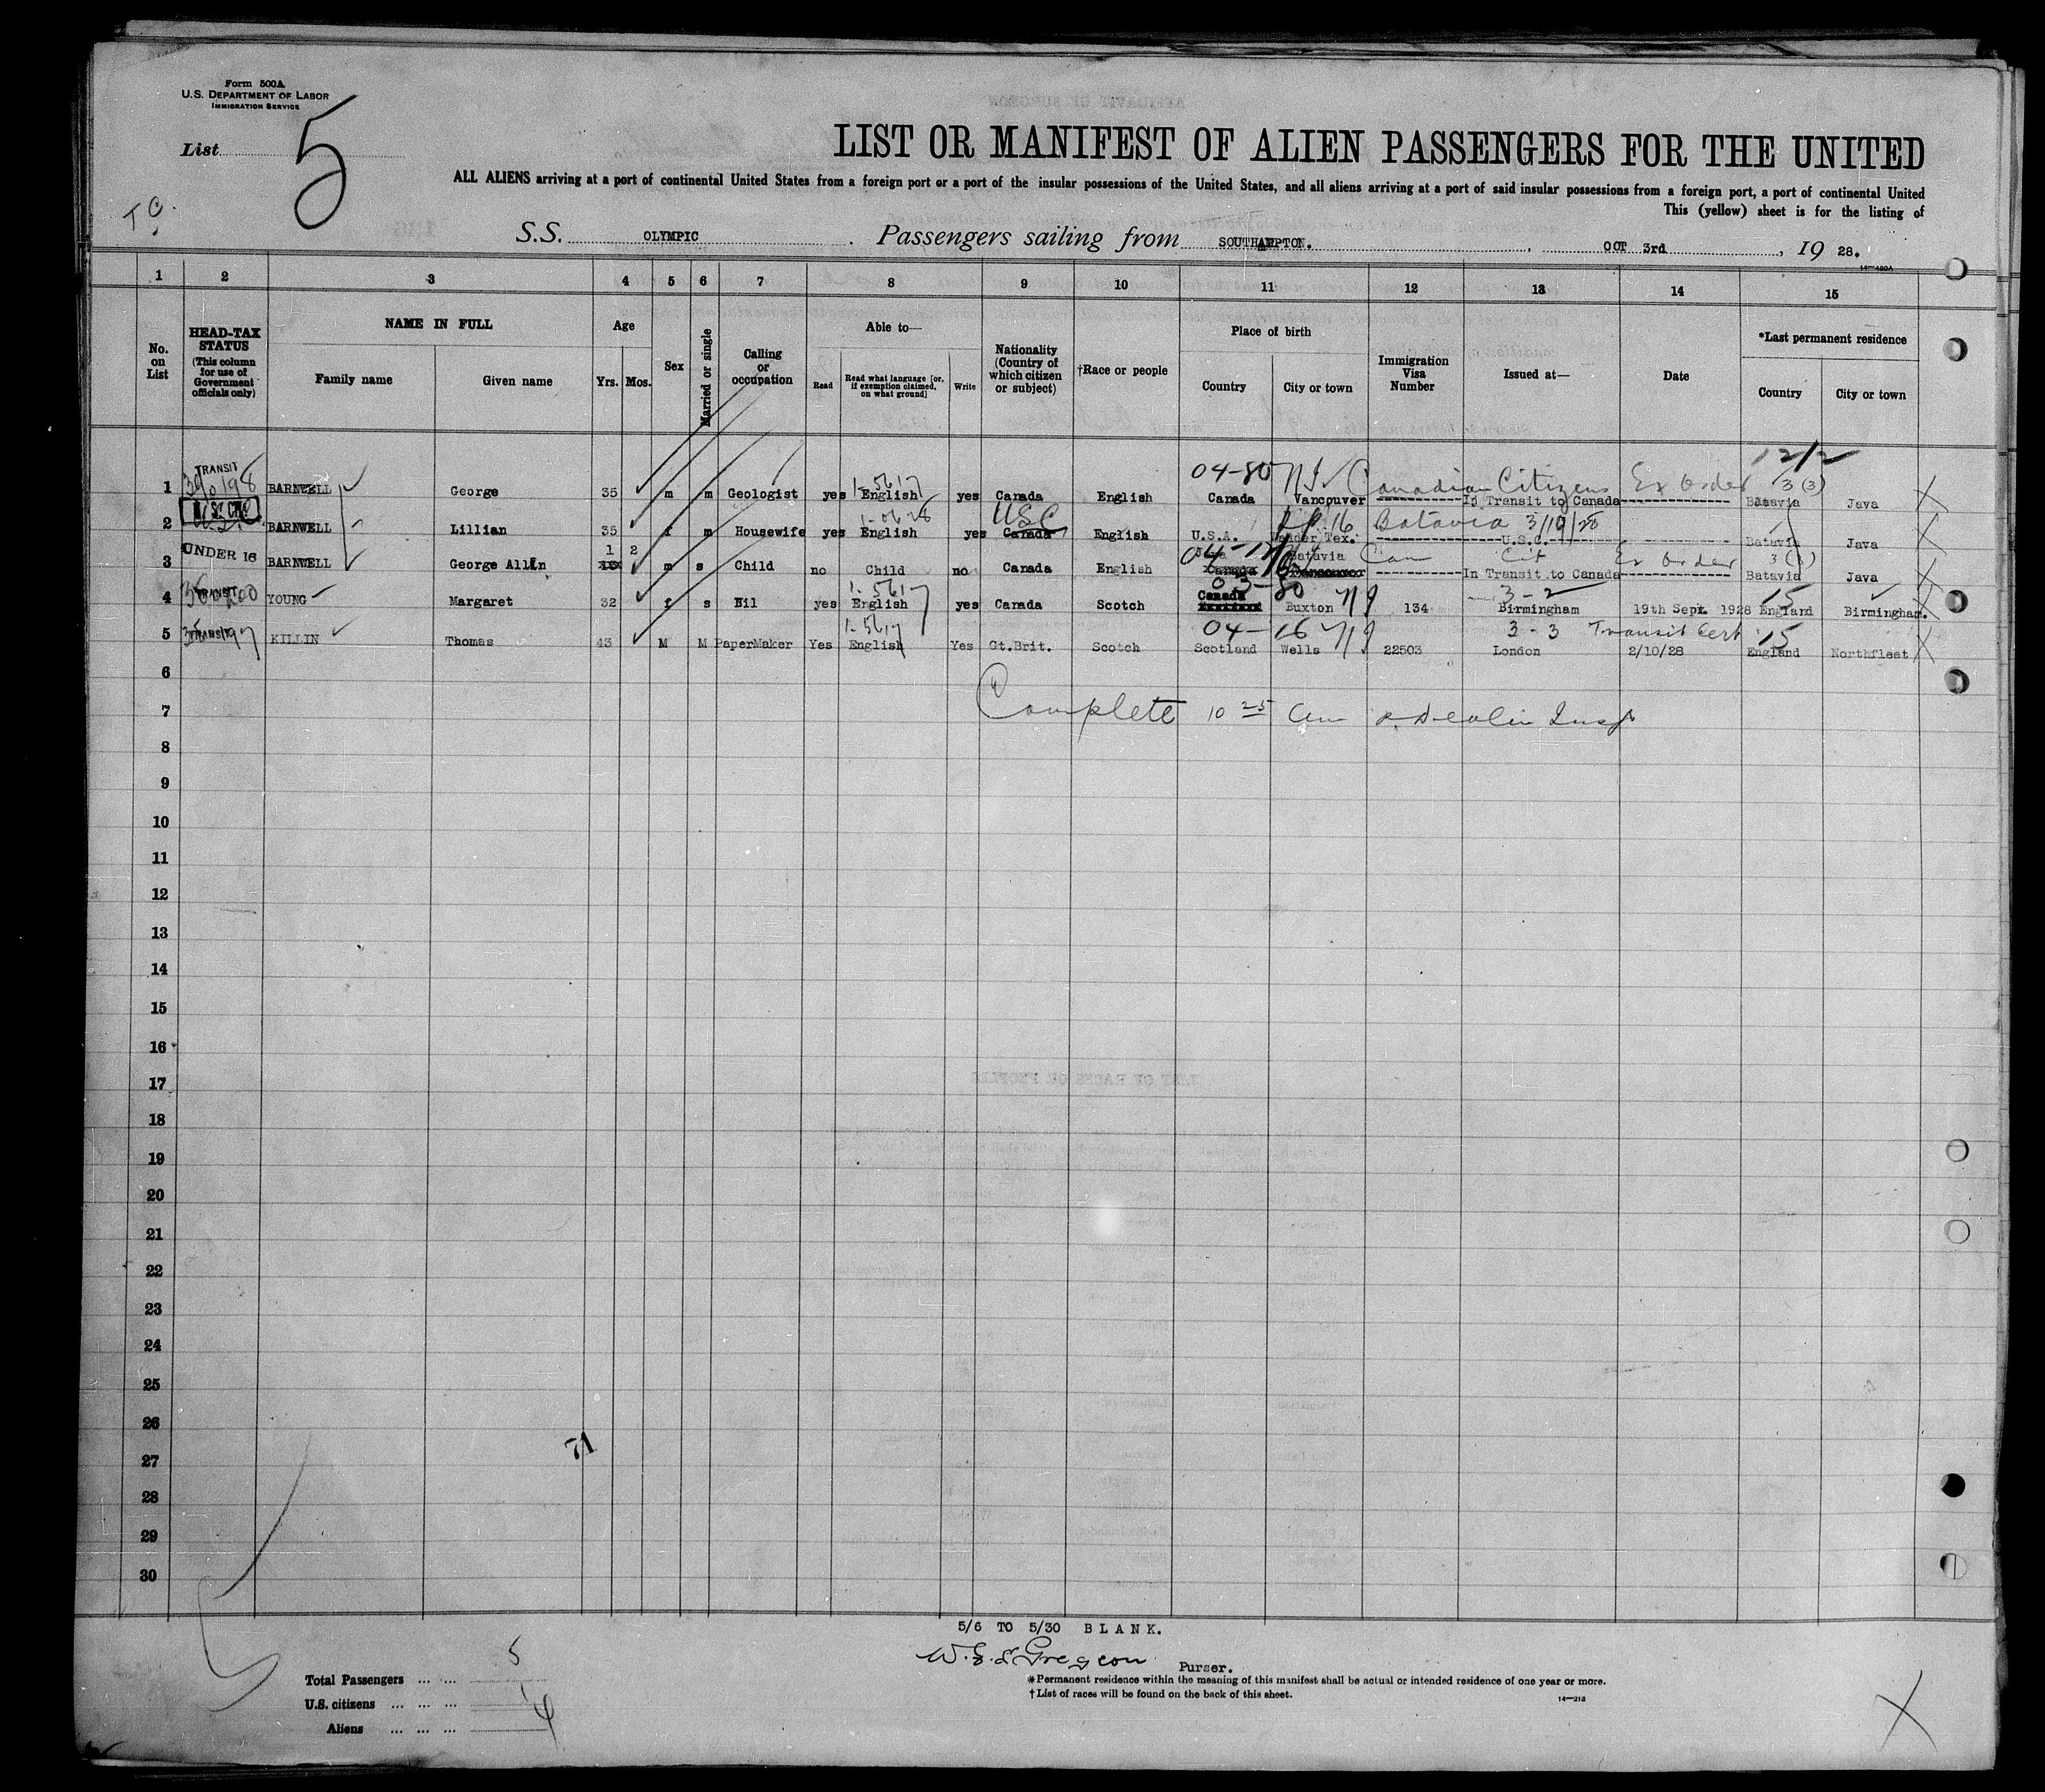 Form 500A
U.S. DEPARTMENT OF LABOR
IMMIGRATION SERVICE
List 5
LIST OR MANIFEST OF ALIEN PASSENGERS FOR THE UNITED
ALL ALIENS arriving at a port of continental United States from a foreign port or a port of the insular possessions of the United States, and all aliens arriving at a port of said insular possessions from a foreign port, a port of continental United
This (yellow) sheet is for the listing of
S.S. OLYMPIC. Passengers sailing from SOUTHAMPTON., OCT 3rd, 19 28.
14—480A
1 2 3 4 5 6 7 8 9 10 11 12 13 14 15
No. on List
HEAD-TAX STATUS (This column for use of Government officials only)
NAME IN FULL
Family name Given name
Age
Yrs. Mos.
Sex
Married or single
Calling or occupation
Able to—
Read Read what language [or, if exemption claimed, on what ground] Write
Nationality (Country of which citizen or subject)
†Race or people
Place of birth
Country City or town
Immigration Visa Number
Issued at—
Date
*Last permanent residence
Country City or town
12/2
TRANSIT 04-80 Canadian Citizens Ex Order 3 (3)
1 BARNWELL George 35 m m Geologist yes English yes Canada English Canada Vancouver In Transit to Canada Batavia Java
USC 16 Batavia 3/19/28
2 BARNWELL Lillian 35 f m Housewife yes English yes Canada English U.S.A. Tex. U.S.C. Batavia Java
UNDER 16 1 2 Batavia Can Cit Ex Order 3 (3)
3 BARNWELL George Allin m s Child no Child no Canada English Canada Vancouver In Transit to Canada Batavia Java
TRANSIT 03-80 Canada 3-2 15
4 YOUNG Margaret 32 f s Nil yes English yes Canada Scotch Buxton 134 Birmingham 19th Sept. 1928 England Birmingham.
TRANSIT 04-16 3-3 Transit Cert 15
5 KILLIN Thomas 43 M M PaperMaker Yes English Yes Gt.Brit. Scotch Scotland Wells 22503 London 2/10/28 England Northfleet
6
7 Complete 10 25 am Insp
8
9
10
11
12
13
14
15
16
17
18
19
20
21
22
23
24
25
26
71
27
28
29
30
5/6 TO 5/30 BLANK.
Purser.
Total Passengers ... ... 5
U.S. citizens ... ... ... 1
Aliens ... ... ... 4
*Permanent residence within the meaning of this manifest shall be actual or intended residence of one year or more.
†List of races will be found on the back of this sheet.
14—213